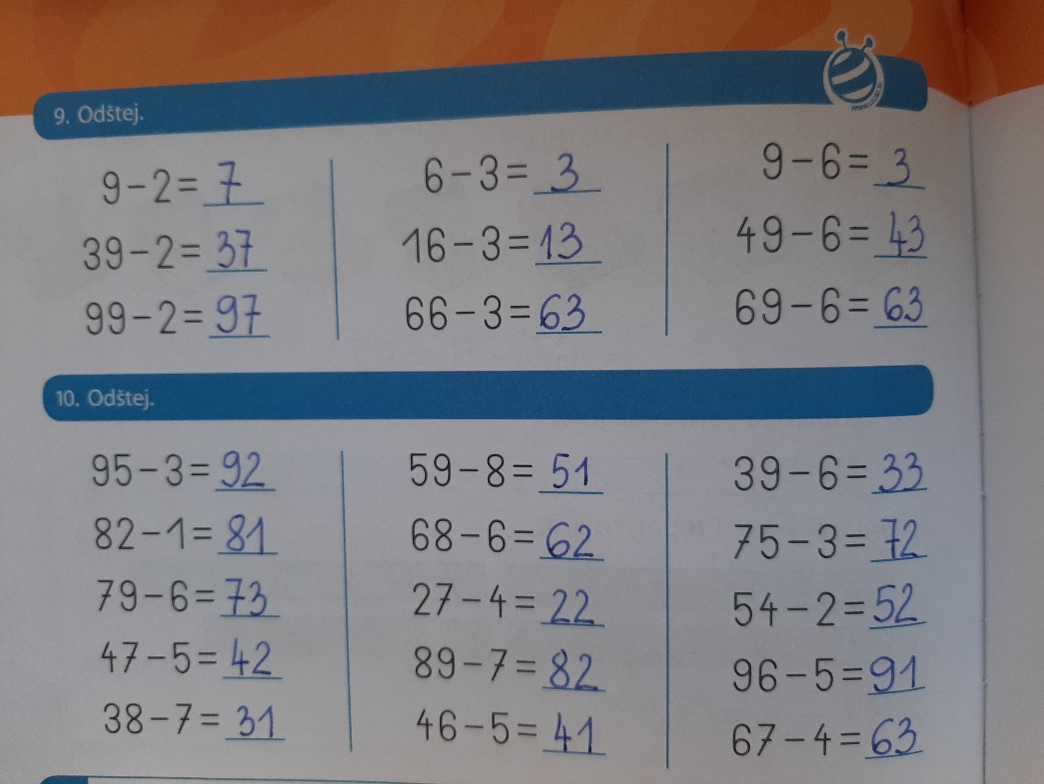 9. Odštej.
9-2=7
39-2=37
99-2=97
6-3=3
16-3=13
66-3=63
9-6=3
49-6=43
69-6=63
10. Odštej.
95-3=92
82-1=81
79-6=73
47-5=42
38-7=31
59-8=51
68-6=62
27-4=22
89-7=82
46-5=41
39-6=33
75-3=72
54-2=52
96-5=91
67-4=63